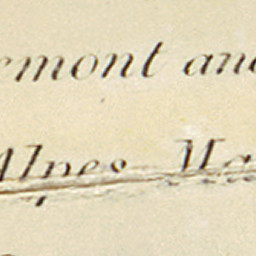 emont and
Alpes Ma